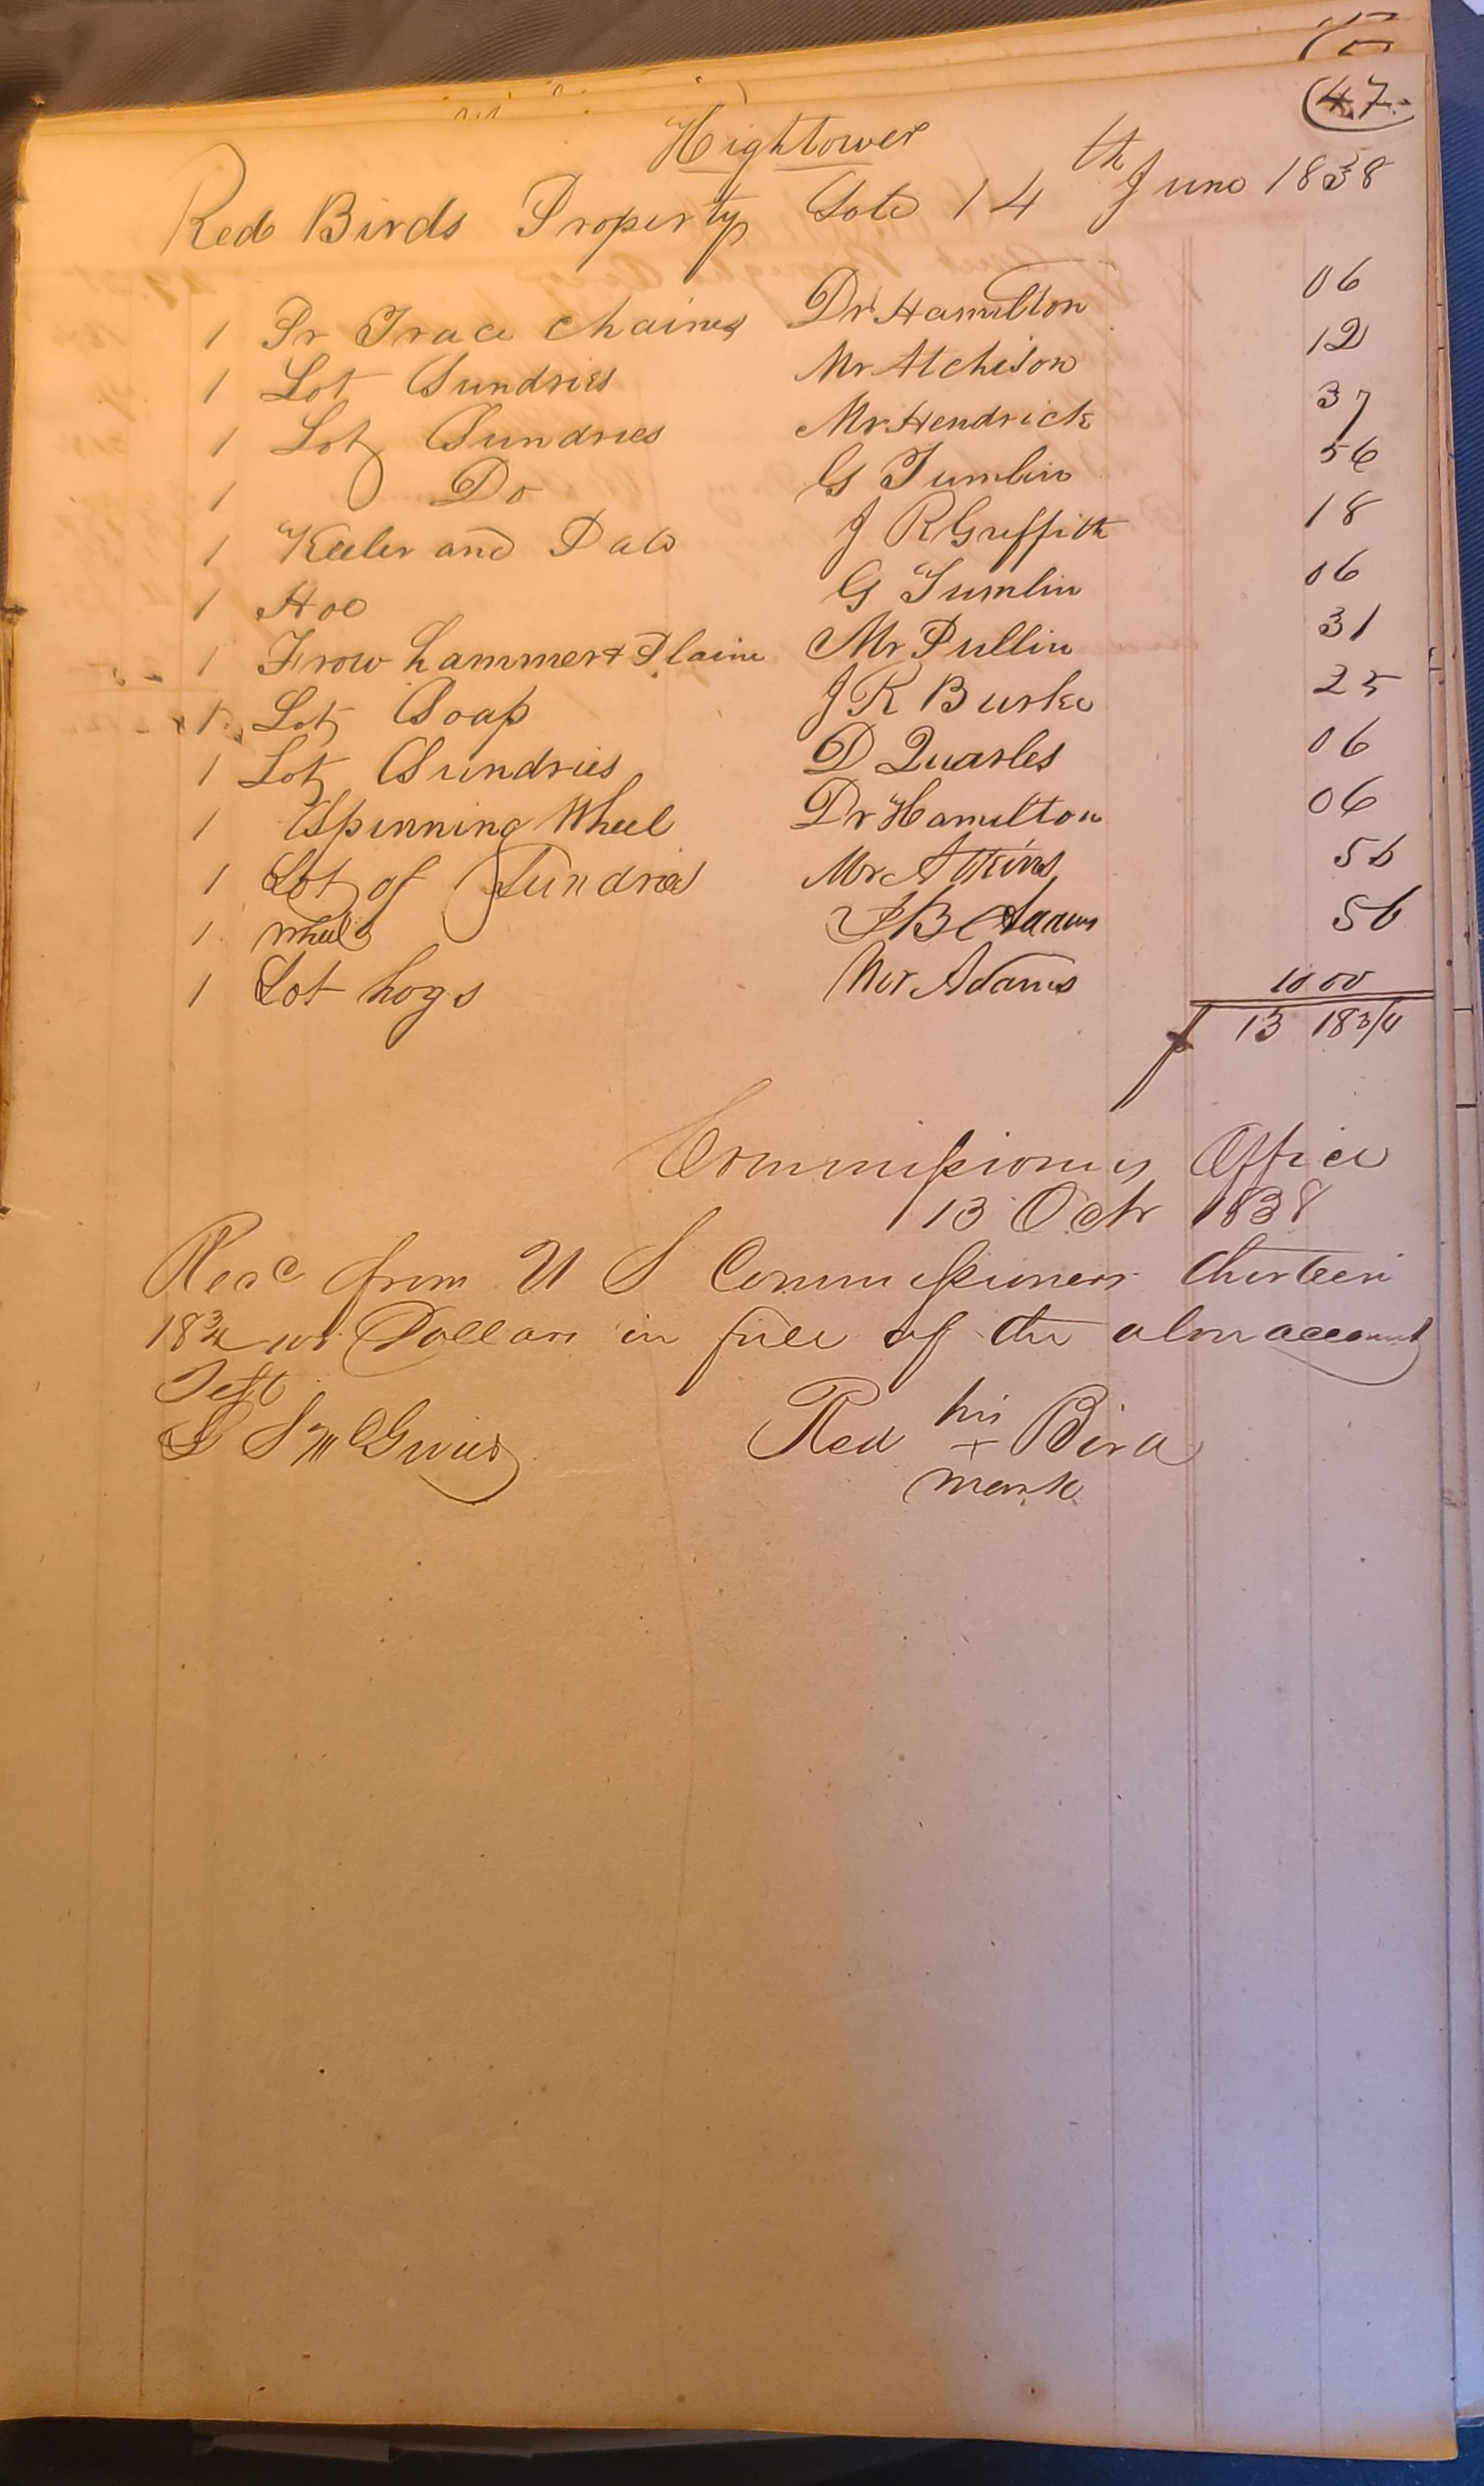 (47.
Hightower
Red Birds Property Sold 14th June 1838
1 Pr Trace Chaines Dr Hamilton 06
1 Lot Sundries Mr Atcheson 12
1 Lot Sundries Mr Hendrick 37
1 Do G Tumlin 56
1 Keeler and Pale J R Griffith 18
1 Hoe G Tumlin 06
1 Frow hammer & Plaine Mr Pullin 31
1 Lot Soap J R Burke 25
1 Lot Sundries D Quarles 06
1 Spinning Wheel Dr Hamilton 06
1 Lot of Sundries Mr Atkins 56
1 Wheel J B Adams 56
1 Lot hogs Mr Adams 10 00
$ 13 18 3/4
Commissioners Office
13 Octr 1838
Recd from U S Commissioners thirteen
18 3/4 Dollars in full of the above account
Test
his
Red + Bird
mark